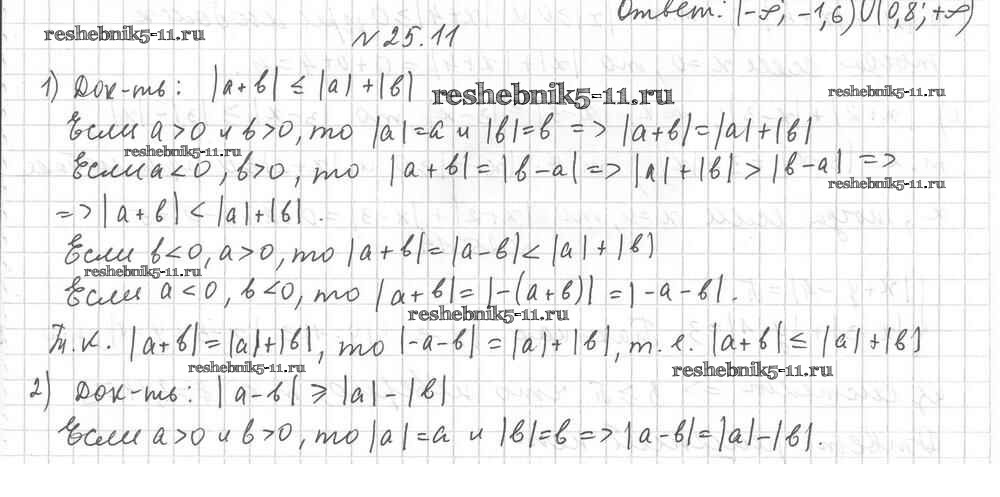 Ответ: (-∞; -1,6)∪(0,8; +∞)
reshebnik5-11.ru
№25.11
1) Док-ть: |a+b| ≤ |a|+|b|
reshebnik5-11.ru
reshebnik5-11.ru
Если a>0 и b>0, то |a|=a и |b|=b => |a+b|=|a|+|b|
reshebnik5-11.ru
Если a<0, b>0, то |a+b|=|b-a| => |a|+|b|>|b-a| =>
reshebnik5-11.ru
=>|a+b|<|a|+|b|.
Если b<0, a>0, то |a+b|=|a-b|<|a|+|b|
reshebnik5-11.ru
Если a<0, b<0, то |a+b|=|-(a+b)|=|-a-b|.
reshebnik5-11.ru
Т.к. |a+b|=|a|+|b|, то |-a-b|=|a|+|b|, т.е. |a+b|≤|a|+|b|
reshebnik5-11.ru
reshebnik5-11.ru
2) Док-ть: |a-b|≥|a|-|b|
Если a>0 и b>0, то |a|=a и |b|=b => |a-b|=|a|-|b|.